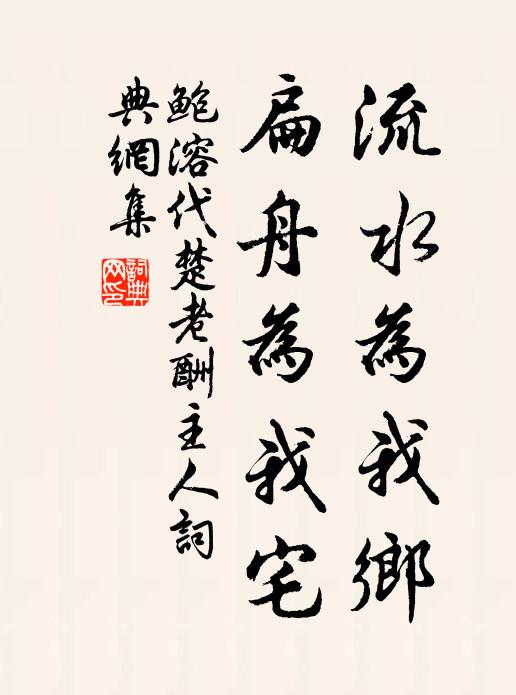 流水為我鄉
扁舟為我宅
鮑溶代楚老酬主人詞
典網集
詞典網印